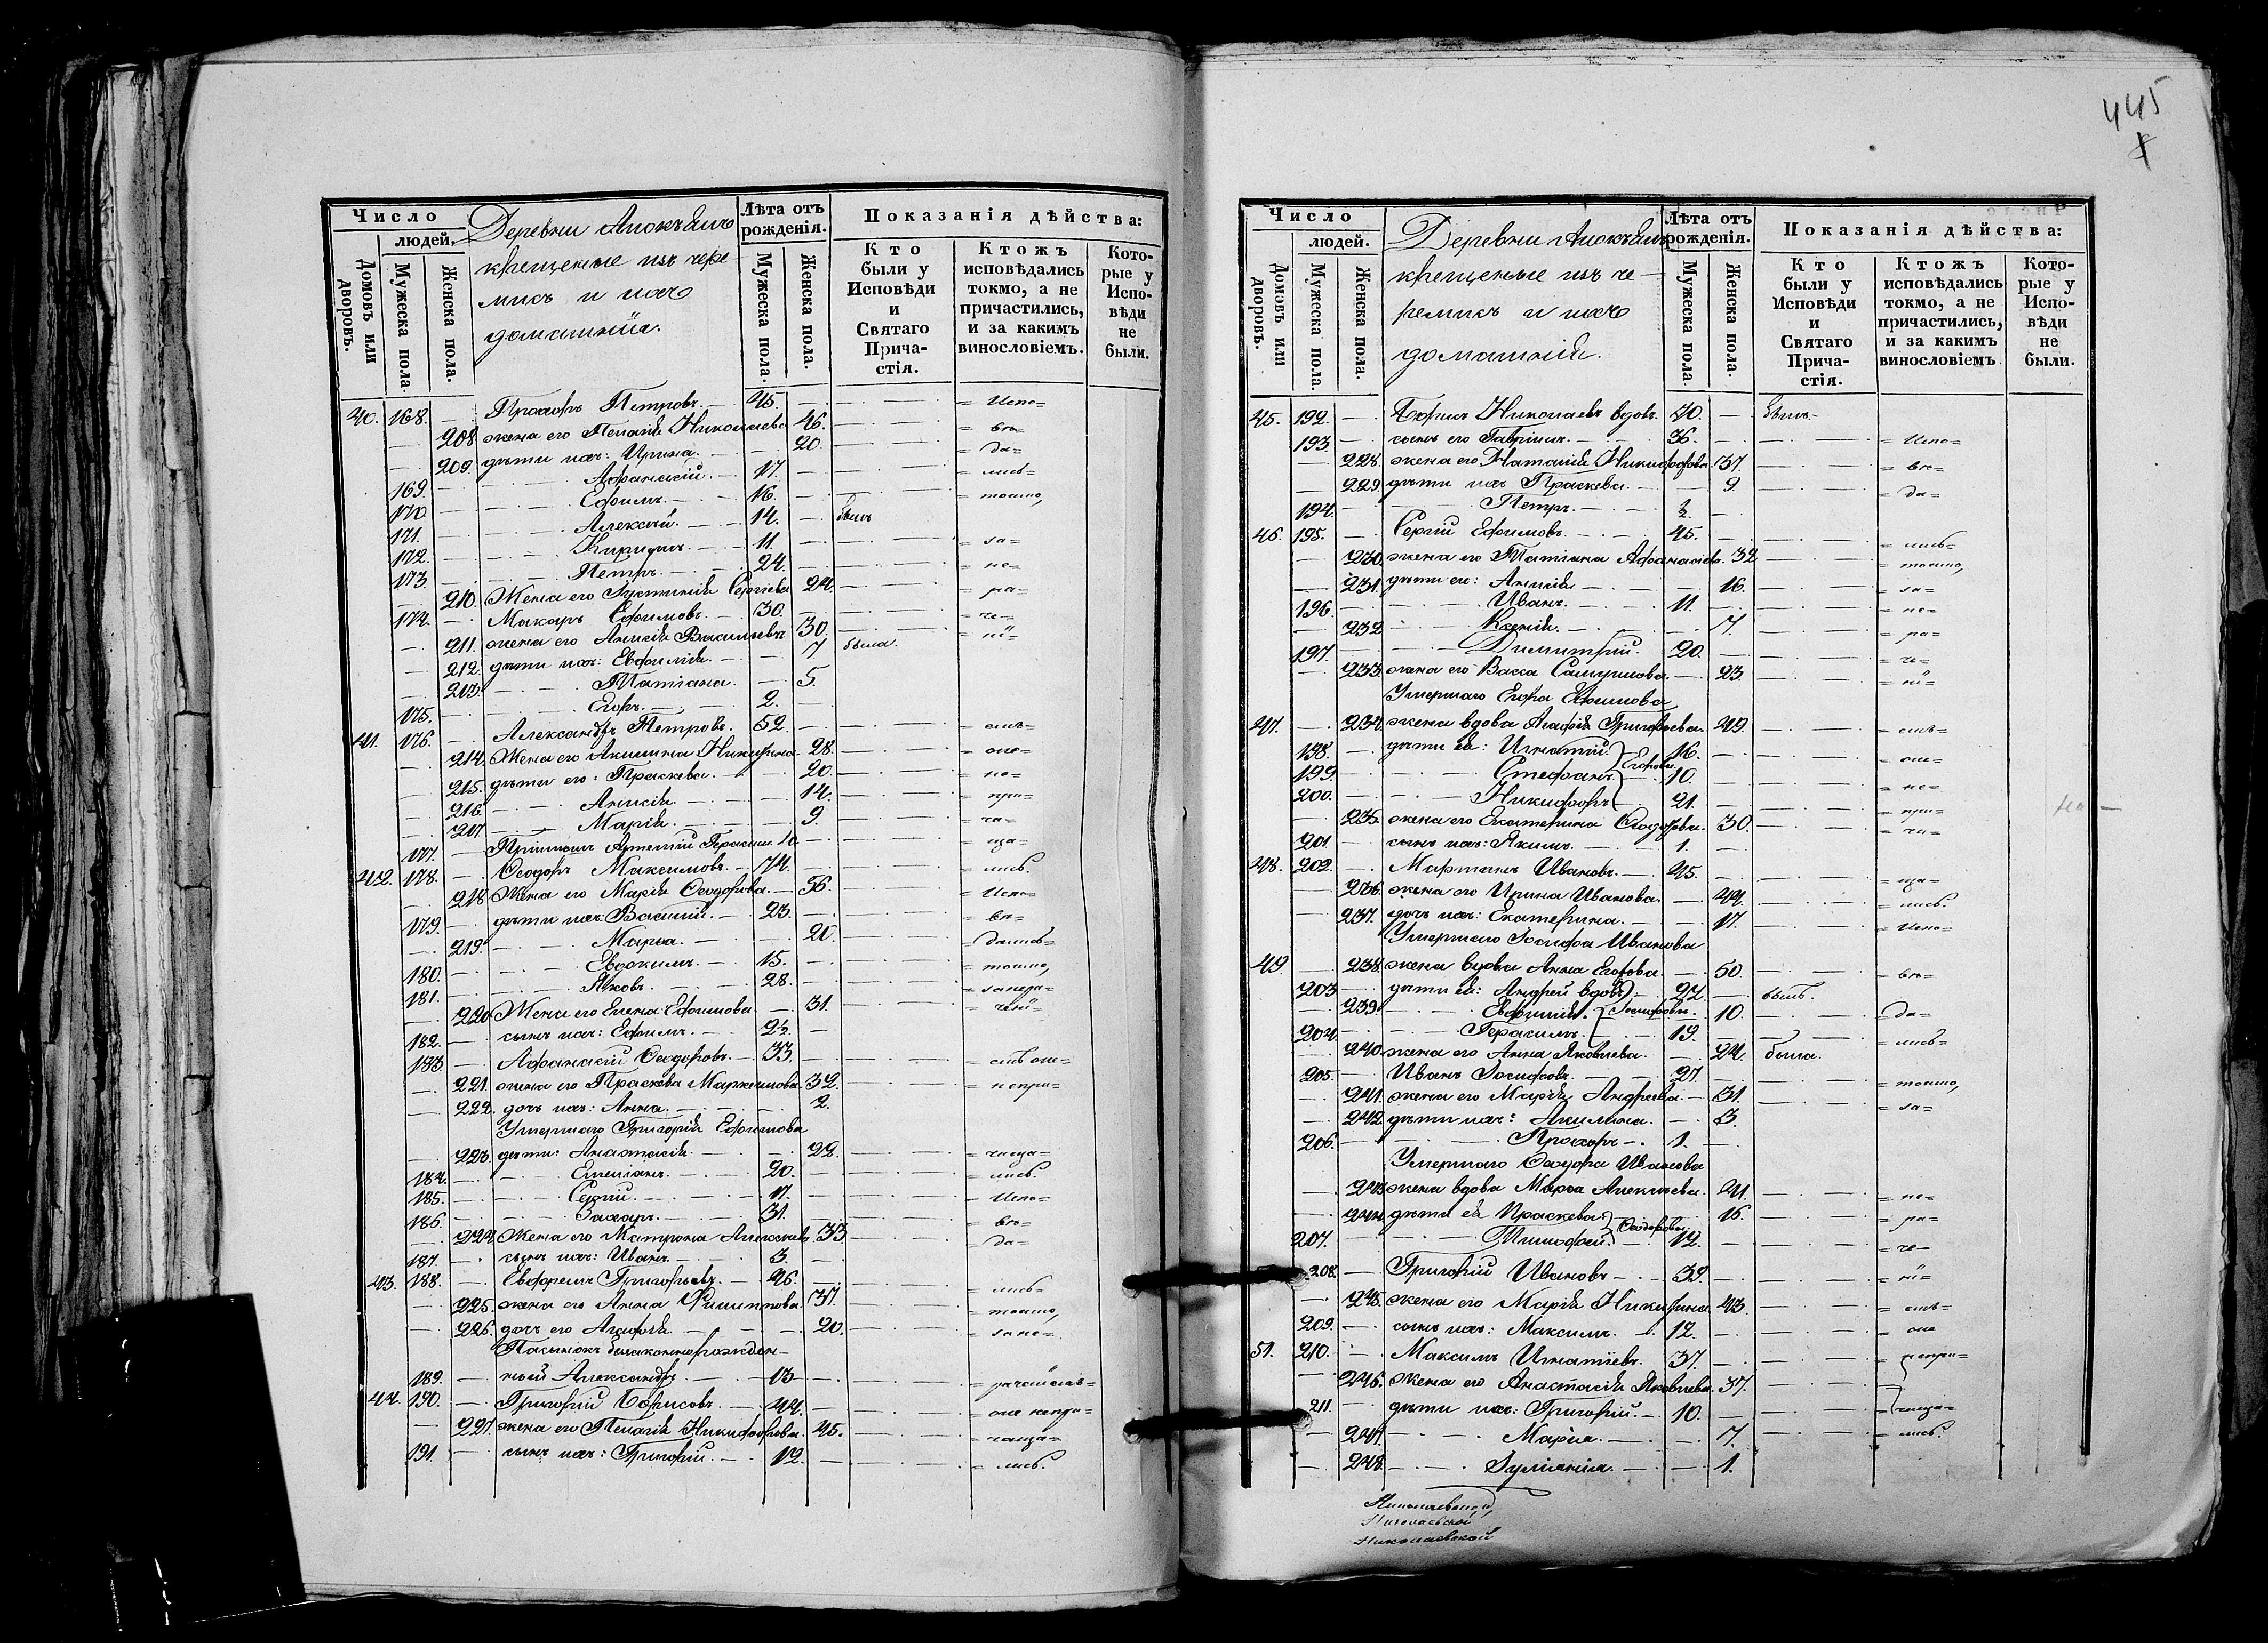 Число
людей.
Домовъ или дворовъ.
Мужеска пола.
Женска пола.
Деревни
крещеные изъ чере-
мисъ и ихъ
домашнiи.
Лѣта отъ рожденія.
Мужеска пола.
Женска пола.
Показанія дѣйства:
Кто были у Исповѣди и Святаго Прича-стія.
Ктожъ исповѣдались токмо, а не причастились, и за какимъ винословіемъ.
Кото-рые у Испо-вѣди не были.
40. 168. — Прохоръ Петровъ. — 45. — = Испо=
— 208 жена его Пелагія Николаева 46. = вѣ=
— 209. дѣти ихъ: Ирина. — 20. = да=
169. — Афанасій. — 17. — = лись=
170. — Ефимъ. — 16. — = токмо,
171. — Алексѣй. — 14. — былъ
172. — Кириллъ. — 11. — = за=
173. — Петръ. — 24. — = не=
— 210. Жена его Іустинія Сергѣева 24. = ра=
174. — Макаръ Ефимовъ. — 30. — = че=
— 211. жена его Анисія Васильева 30. = нi=
— 212. дѣти ихъ: Евфимія. — 7 была.
— 213. — Татіана. — 5.
175. — Егоръ. — 2. —
41. 176. — Александръ Петровъ. 52. — = емъ=
— 214. Жена его Акилина Никифорова 28. = оно=
— 215. дѣти его: Праскева. — 20. = не=
— 216. — Анисія — 14. = при=
— 217. — Марія. — 9. = ча=
177. — Артемій 10 = ща=
42. 178. — Ѳеодоръ Максимовъ. 74. — = лись.
— 218 Жена его Марія Ѳеодорова. — 56. = Испо=
179. — дѣти ихъ: Василій. — 23. — = вѣ=
— 219. — Марѳа. — 20. = дались=
180. — Евдокимъ. — 15. — = токмо,
181. — Яковъ. — 28. — = занера=
— 220 Жена его Елена Ефимова — 31. = ченi=
182. — сынъ ихъ: Ефимъ. —
183 — Афанасій Ѳеодоровъ. — 33. —
— 221. жена его Праскева 32. = непри=
— 222. дочь ихъ: Анна. — 2.
Умершаго Григорія Ефимова
— 223. дѣти: Анастасія. — 22. = чаща=
184. — Емеліанъ. — 20. — = лись.
185. — Сергій. — 17. — = Испо=
186. — Захаръ. — 31. — = вѣ=
— 224. Жена его Матрона Алексѣева 33. = да=
187. — сынъ ихъ: Иванъ. — 3. —
43. 188. — Евфремъ Григорьевъ. — 46. — = лись=
— 225. жена его Анна Филиппова. 37. = токмо,
— 226. дочь его Агафія — 20. = зане=
Пасынокъ безаконнорожден-
189. — ный Александръ. — 13 —
44. 190. — Григорій Борисовъ. — 44. — = оне непри=
— 227. жена его Пелагія Никифорова. 45. = чаща=
191. — сынъ ихъ: Григорій. — 12. — = лись.
445
Число
людей.
Домовъ или дворовъ.
Мужеска пола.
Женска пола.
Деревни
крещеные изъ че-
ремисъ и ихъ
домашніи.
Лѣта отъ рожденія.
Мужеска пола.
Женска пола.
Показанія дѣйства:
Кто были у Исповѣди и Святаго Прича-стія.
Ктожъ исповѣдались токмо, а не причастились, и за какимъ винословіемъ.
Кото-рые у Испо-вѣди не были.
45. 192. — Борисъ Николаевъ вдовъ. 70. — былъ.
193. — сынъ его Гавріилъ. — 36. — = Испо=
— 228. жена его Наталія Никифорова. 37. = вѣ=
— 229. дѣти ихъ Праскева. — 9. = да=
194. — Петръ. —
46. 195. — Сергій Ефимовъ. — 45. — = лись=
— 230. жена его Татіана Афанасіев. 32 = токмо,
— 231. дѣти его: Анисія — 16. = за=
196. — Иванъ. — 11. — = не=
— 232 — Ксенія. — 7. = ра=
197. — Димитрій. 20. — = че=
— 233. жена его Васса — 23. = нi=
Умершаго Егора
47. — 234. жена вдова Агафія Григорьева. 49. = емъ=
198. — дѣти ея: Игнатій. Егоровы 16. — = оне=
199. — Стефанъ. 10. — = не=
200. — Никифоръ. 21. — = при=
— 235. жена его Екатерина Ѳеодорова. 30. = ча=
201. — сынъ ихъ: Якимъ. — 1. —
48. 202. — Мартинъ Ивановъ. — 45. — = ща=
— 236. жена его Ирина Иванова. — 44. = лись.
— 237. дочь ихъ: Екатерина. — 17. = Испо=
Умершаго Іосифа Иванова
49. — 238. жена вдова Анна Егорова. — 50. = вѣ=
203 — дѣти ея: Андрей вдовъ Іосифовы 27. — былъ.
— 239 — Евфимія. 10. = да=
204. — Герасимъ. 19. — = лись=
— 240. жена его Анна Яковлева. — 24. была.
205. — Иванъ Іосифовъ. — 27. — = токмо,
— 241. жена его Марія Андреева. — 31. = за=
— 242. дѣти ихъ: Акилина. — 3.
206. — Прохоръ —. 1. —
Умершаго Ѳеодора Иванова
— 243. жена вдова Марѳа Алексѣева. 41. = не=
— 244. дѣти ея Праскева. Ѳеодоровы 16. = ра=
207. — Тимофей. 12. — = че=
208. — Григорій Ивановъ — 39. — = нi=
— 245. жена его Марія Никифорова 43. = емъ=
209. — сынъ ихъ: Максимъ. — 12. — = оне
51. 210. — Максимъ Игнатіевъ. 37. — = непри=
— 246. Жена его Анастасія Яковлева. 37.
211. — дѣти ихъ: Григорій. — 10. — = чаща=
— 247. — Марѳа. — 7. = лись.
— 248. — Іуліанія. — 1.
Николаевской,
Николаевской
Николаевской